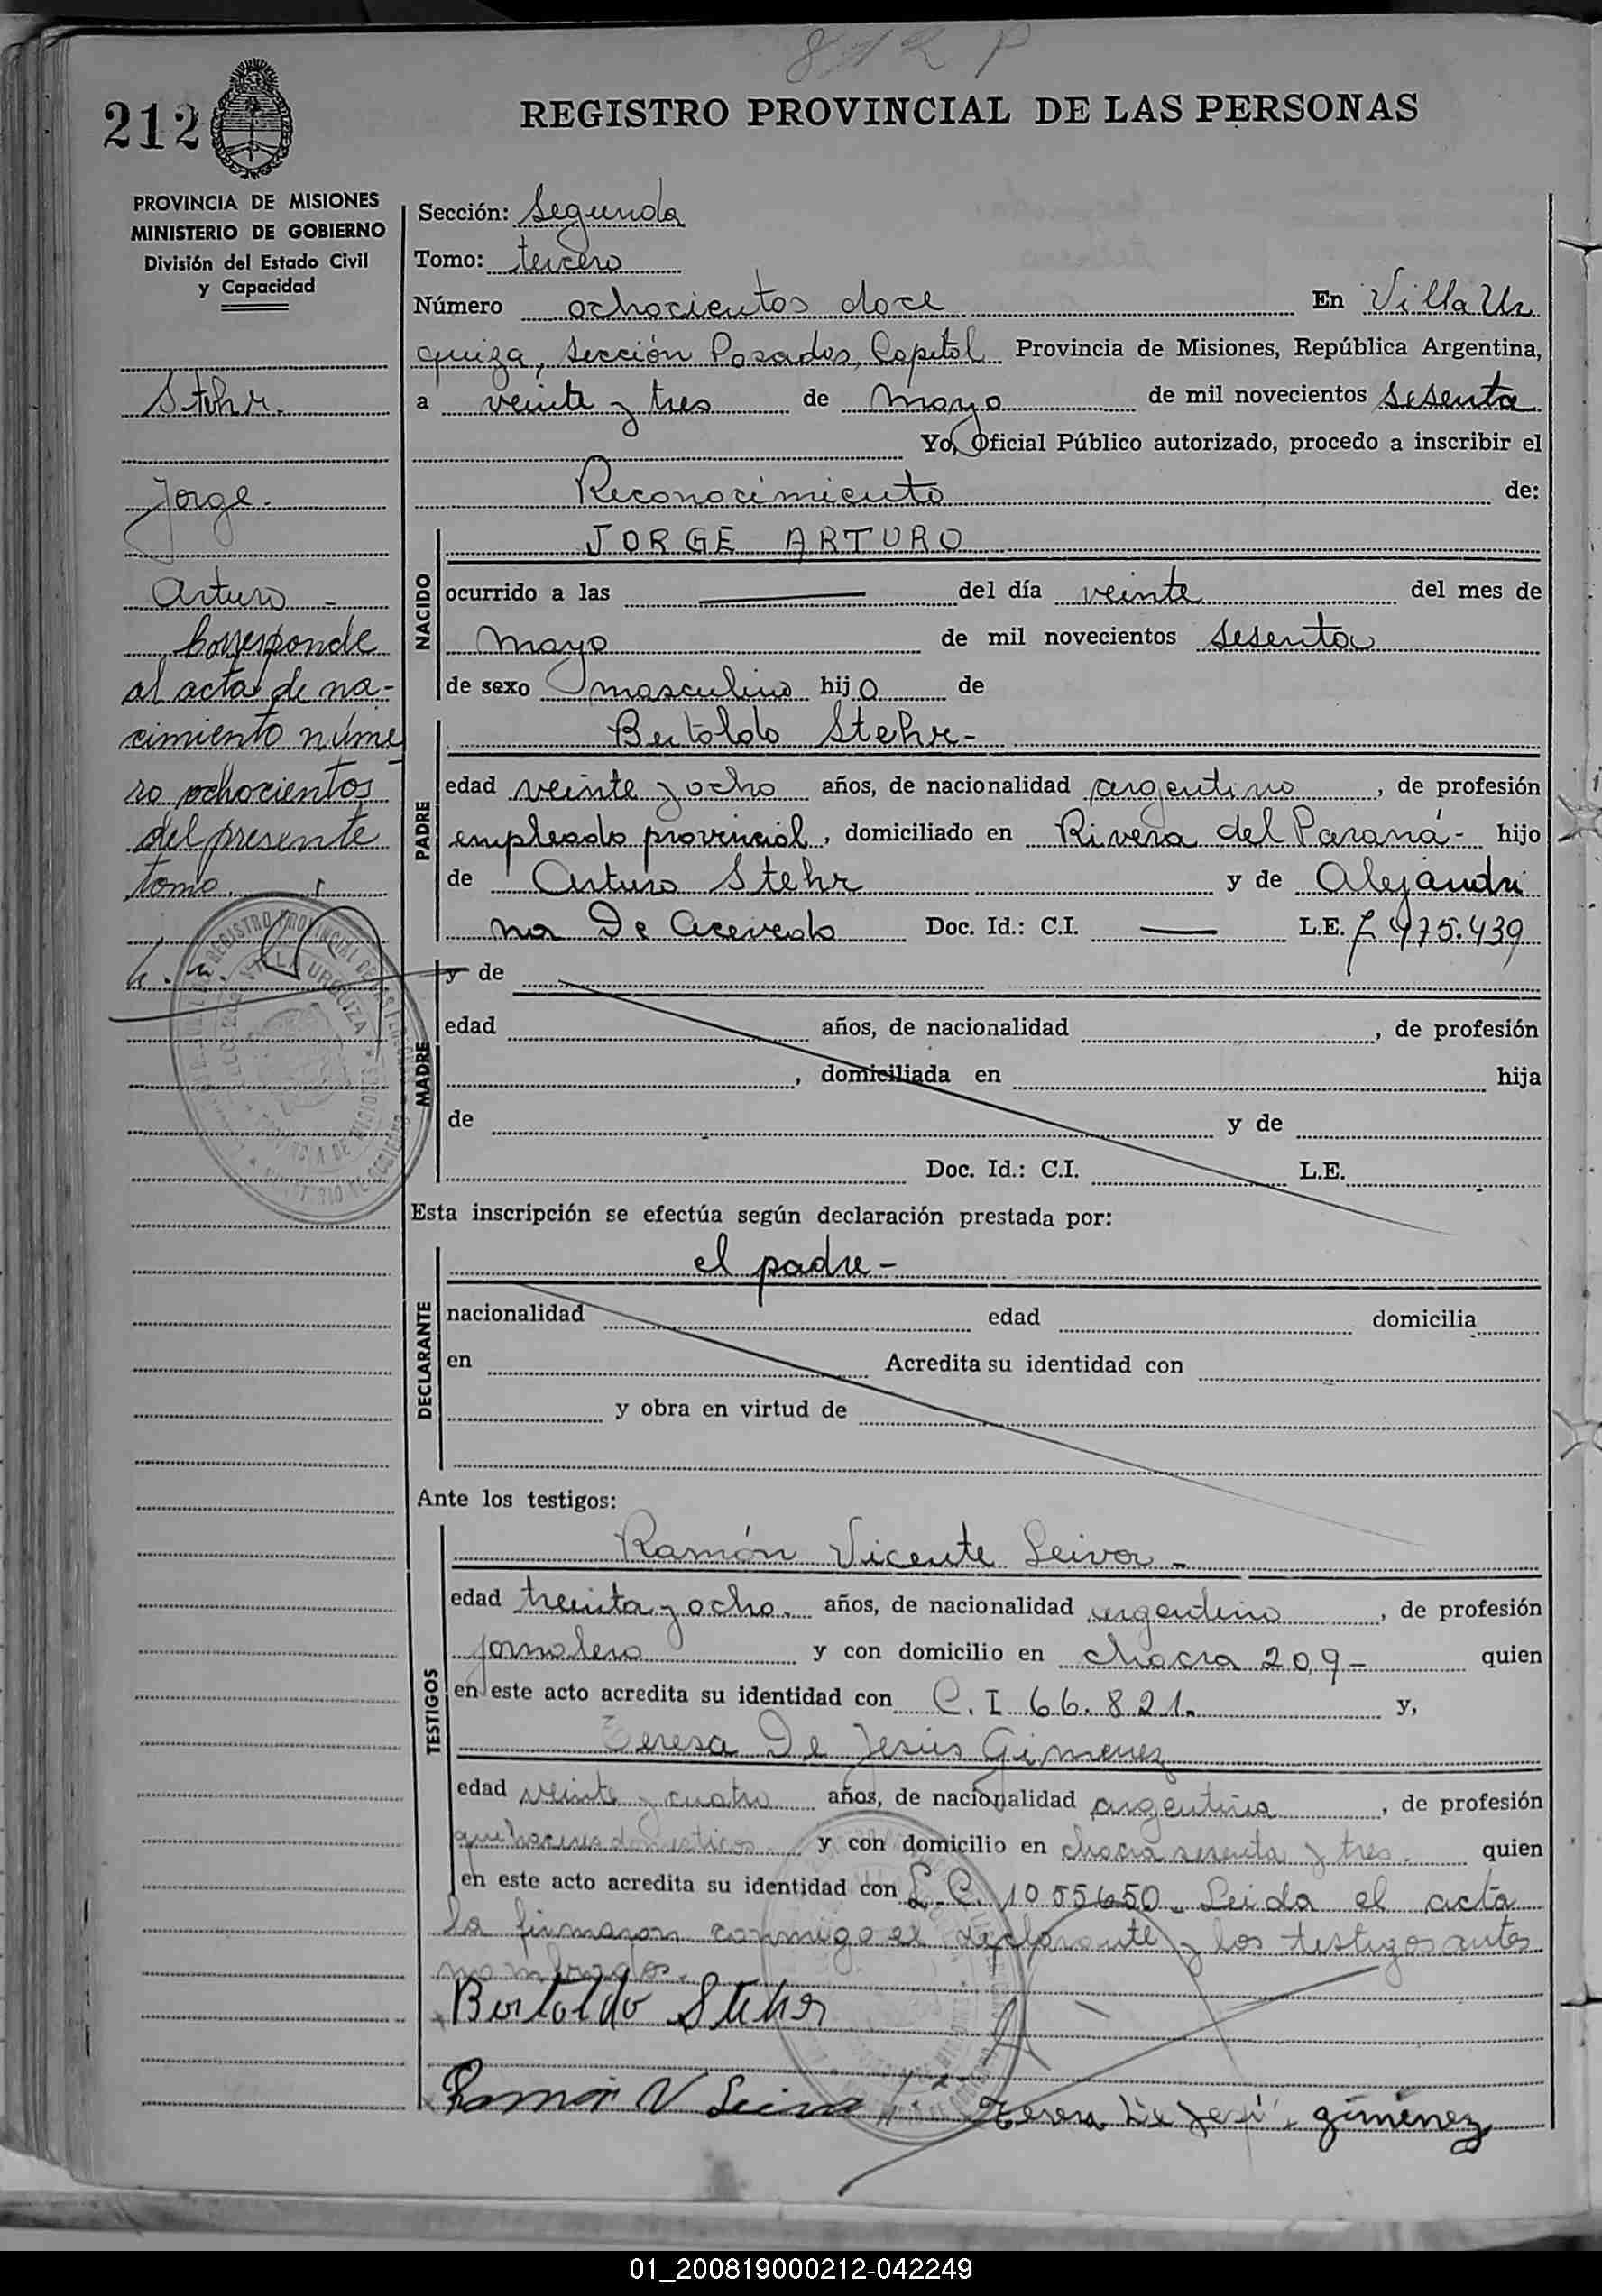 812 P
212
REGISTRO PROVINCIAL DE LAS PERSONAS
PROVINCIA DE MISIONES
MINISTERIO DE GOBIERNO
División del Estado Civil
y Capacidad
Stehr.
Jorge.
Arturo -
Corresponde
al acta de na-
cimiento núme
ro ochocientos
del presente
tomo.
Sección: Segunda
Tomo: tercero
Número ochocientos doce En Villa Ur
quiza, sección Posadas, Capital Provincia de Misiones, República Argentina,
a veinte y tres de mayo de mil novecientos sesenta
Yo, Oficial Público autorizado, procedo a inscribir el
Reconocimiento de:
NACIDO
JORGE ARTURO
ocurrido a las —— del día veinte del mes de
mayo de mil novecientos sesenta
de sexo masculino hijo de
PADRE
Bertoldo Stehr-
edad veinte y ocho años, de nacionalidad argentino, de profesión
empleado provincial, domiciliado en Rivera del Paraná- hijo
de Arturo Stehr y de Alejandri
na De Acevedo Doc. Id.: C.I. —— L.E. 7.475.439
MADRE
y de
edad años, de nacionalidad , de profesión
, domiciliada en hija
de y de
Doc. Id.: C.I. L.E.
Esta inscripción se efectúa según declaración prestada por:
DECLARANTE
el padre-
nacionalidad edad domicilia
en Acredita su identidad con
y obra en virtud de
Ante los testigos:
TESTIGOS
Ramón Vicente Leiva -
edad treinta y ocho. años, de nacionalidad argentino, de profesión
jornalero y con domicilio en chacra 209- quien
en este acto acredita su identidad con C.I 66.821. y,
Teresa De Jesús Gimenez
edad veinte y cuatro años, de nacionalidad argentina, de profesión
quehaceres domesticos y con domicilio en chacra sesenta y tres. quien
en este acto acredita su identidad con L.C. 1055650_ Leida el acta
la firmaron conmigo el declarante y los testigos antes
nombrados.
Bertoldo Stehr
Ramón V Leiva Teresa De Jesús gimenez
01_200819000212-042249